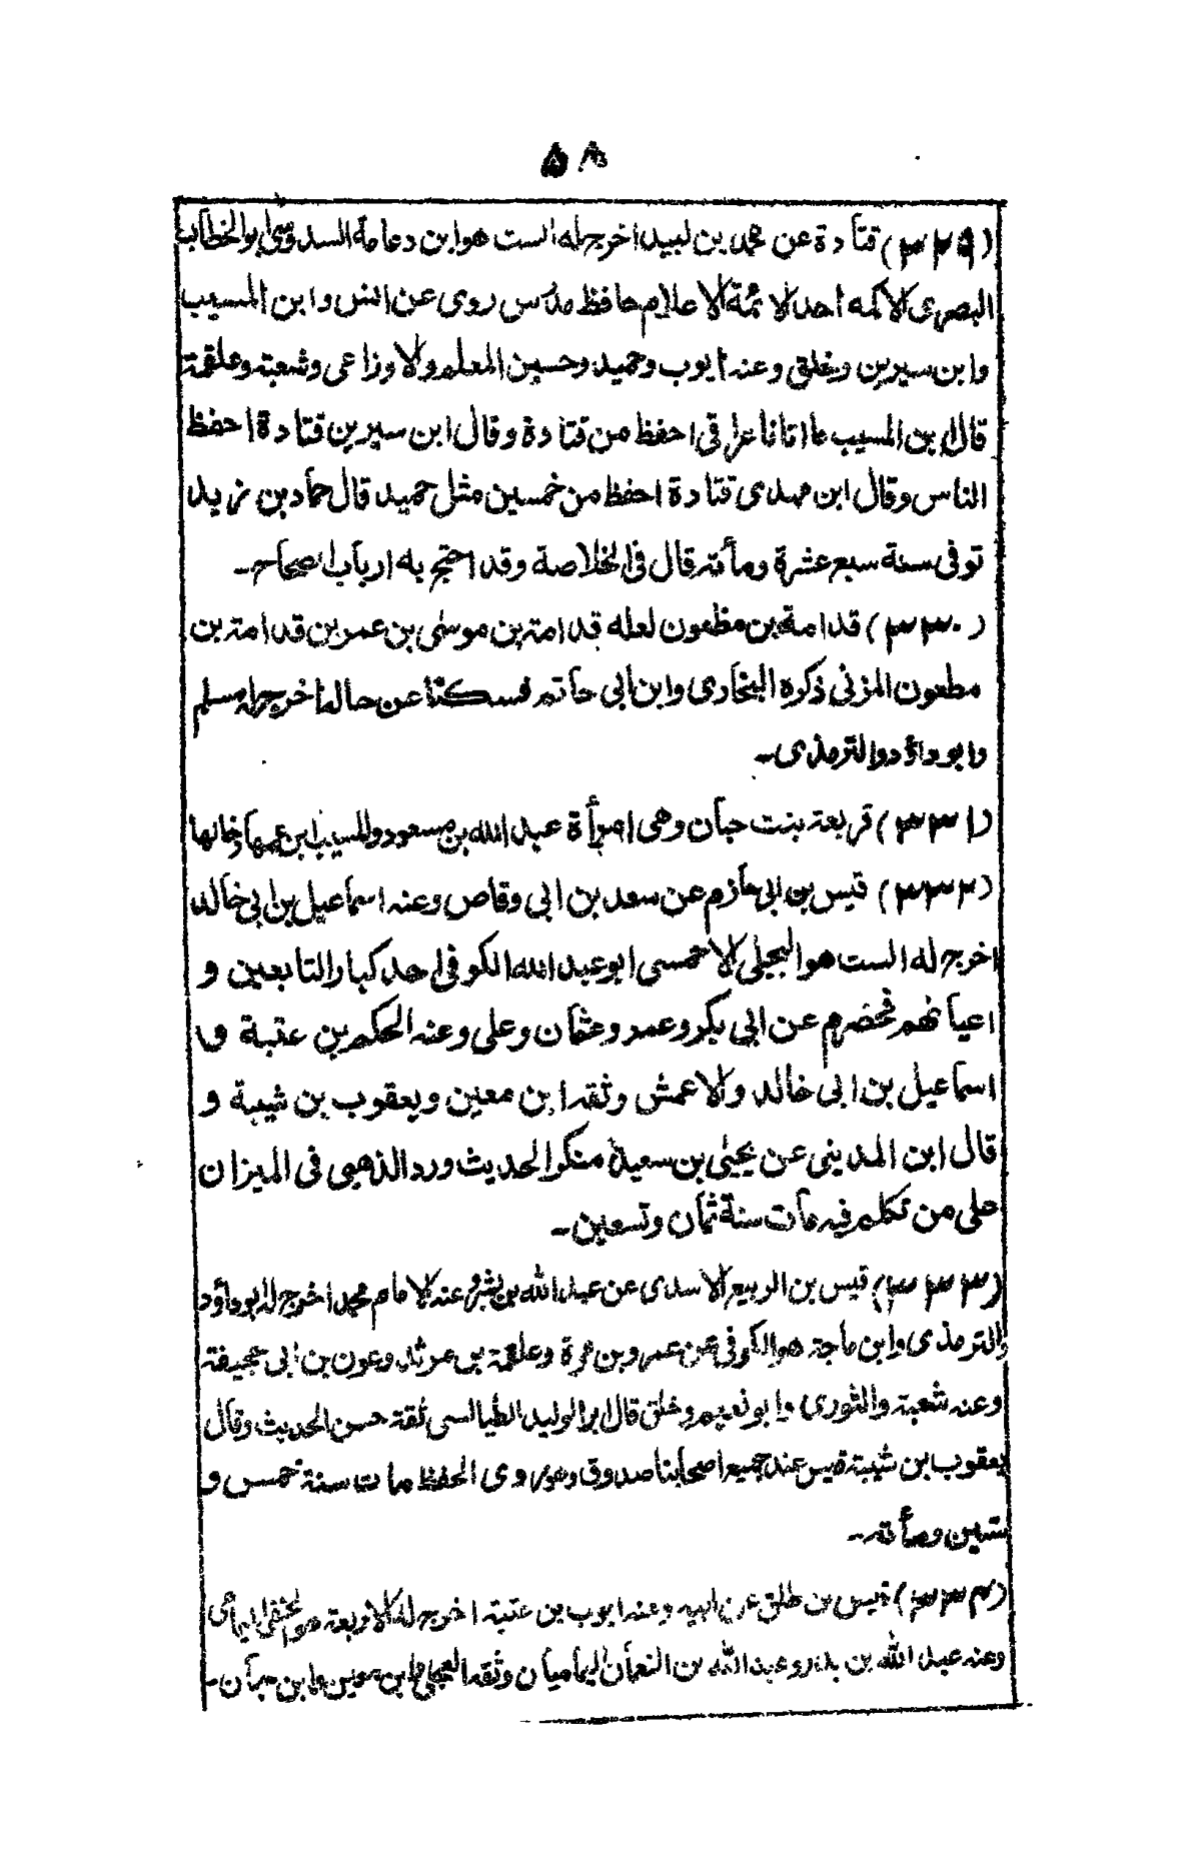 ۵۸
(۳۲۹) قتادة عن محمد بن لبيد اخرجله الست هوا بن دعامة السدوسى ابوالخطاب
البصرى الاكمه احد الائمة الاعلام حافظ مدلس روى عن انس وابن المسيب
وابن سيرين وخلق وعنه ايوب وحميد وحسين المعلم والاوزاعى وشعبة وعلقمة
قال ابن المسيب ما اتانا عراقى احفظ من قتادة وقال ابن سيرين قتادة احفظ
الناس وقال ابن مهدى قتادة احفظ من خمسين مثل حميد قال حماد بن زيد
توفى سنة سبع عشرة ومأته قال فى الخلاصة وقد احتج به ارباب الصحاح-
(۳۳۰) قدامة بن مظعون لعله قدامته بن موسى بن عمر بن قدامته بن
مطعون المزنى ذكره البخارى وابن ابى حاتم فسكتا عن حاله اخرجله مسلم
وابوداؤد والترمذى-
(۳۳۱) قريعة بنت حبان وهى امرأة عبد الله بن مسعود والمسيب ابن عمها وخالها
(۳۳۲) قيس بن ابى حازم عن سعد بن ابى وقاص وعنه اسماعيل بن ابى خالد
اخرج له الست هو البجلى الاحمسى ابو عبد الله الكوفى احد كبار التابعين و
اعيانهم مخضرم عن ابى بكر وعمر وعثمان وعلى وعنه الحكم بن عتبة و
اسماعيل بن ابى خالد والاعمش وثقه ابن معين ويعقوب بن شيبة و
قال ابن المدينى عن يحيى بن سعيد منكر الحديث ورد الذهبى فى الميزان
على من تكلم فيه مات سنة ثمان وتسعين-
(۳۳۳) قيس بن الربيع الاسدى عن عبد الله بن بشر وعنه الامام محمد اخرج له ابوداؤد
والترمذى وابن ماجة هو الكوفى عن عمرو بن مرة وعلقمة بن مرثد وعون بن ابى جحيفة
وعنه شعبة والثورى وابو نعيم وخلق قال ابو الوليد الطيالسى ثقة حسن الحديث وقال
يعقوب ابن شيبة قيس عند جميع اصحابنا صدوق وهو روى الحفظ مات سنة خمس و
ستين ومأته-
(۳۳۴) قيس بن طلق عن ابيه وعنه ايوب بن عتبة اخرج له الاربعة هو الحنفى اليمامى
وعنه عبد الله بن بدر وعبد الله بن النعمان اليماميان وثقه العجلى وابن معين وابن حبان-